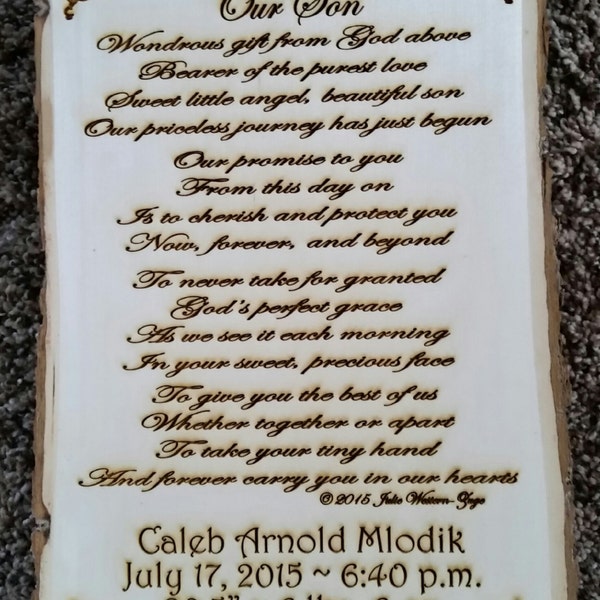 Our Son
Wondrous gift from God above
Bearer of the purest love
Sweet little angel, beautiful son
Our priceless journey has just begun
Our promise to you
From this day on
Is to cherish and protect you
Now, forever, and beyond
To never take for granted
God's perfect grace
As we see it each morning
In your sweet, precious face
To give you the best of us
Whether together or apart
To take your tiny hand
And forever carry you in our hearts
© 2015 Julie Western-
Caleb Arnold Mlodik
July 17, 2015 ~ 6:40 p.m.